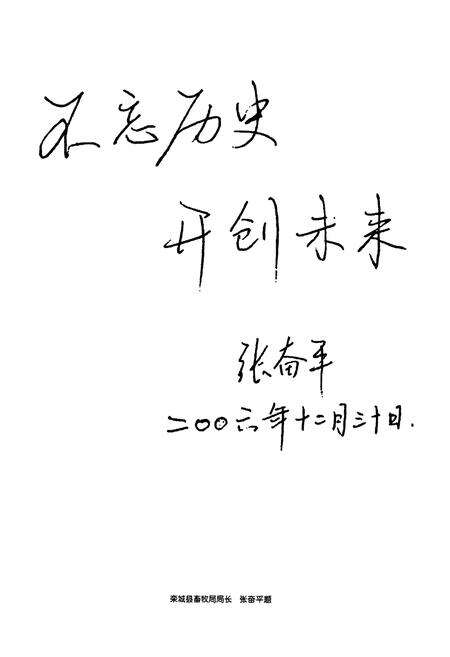 不忘历史
开创未来
张奋平
二〇〇六年十二月三十日.
栾城县畜牧局局长 张奋平题